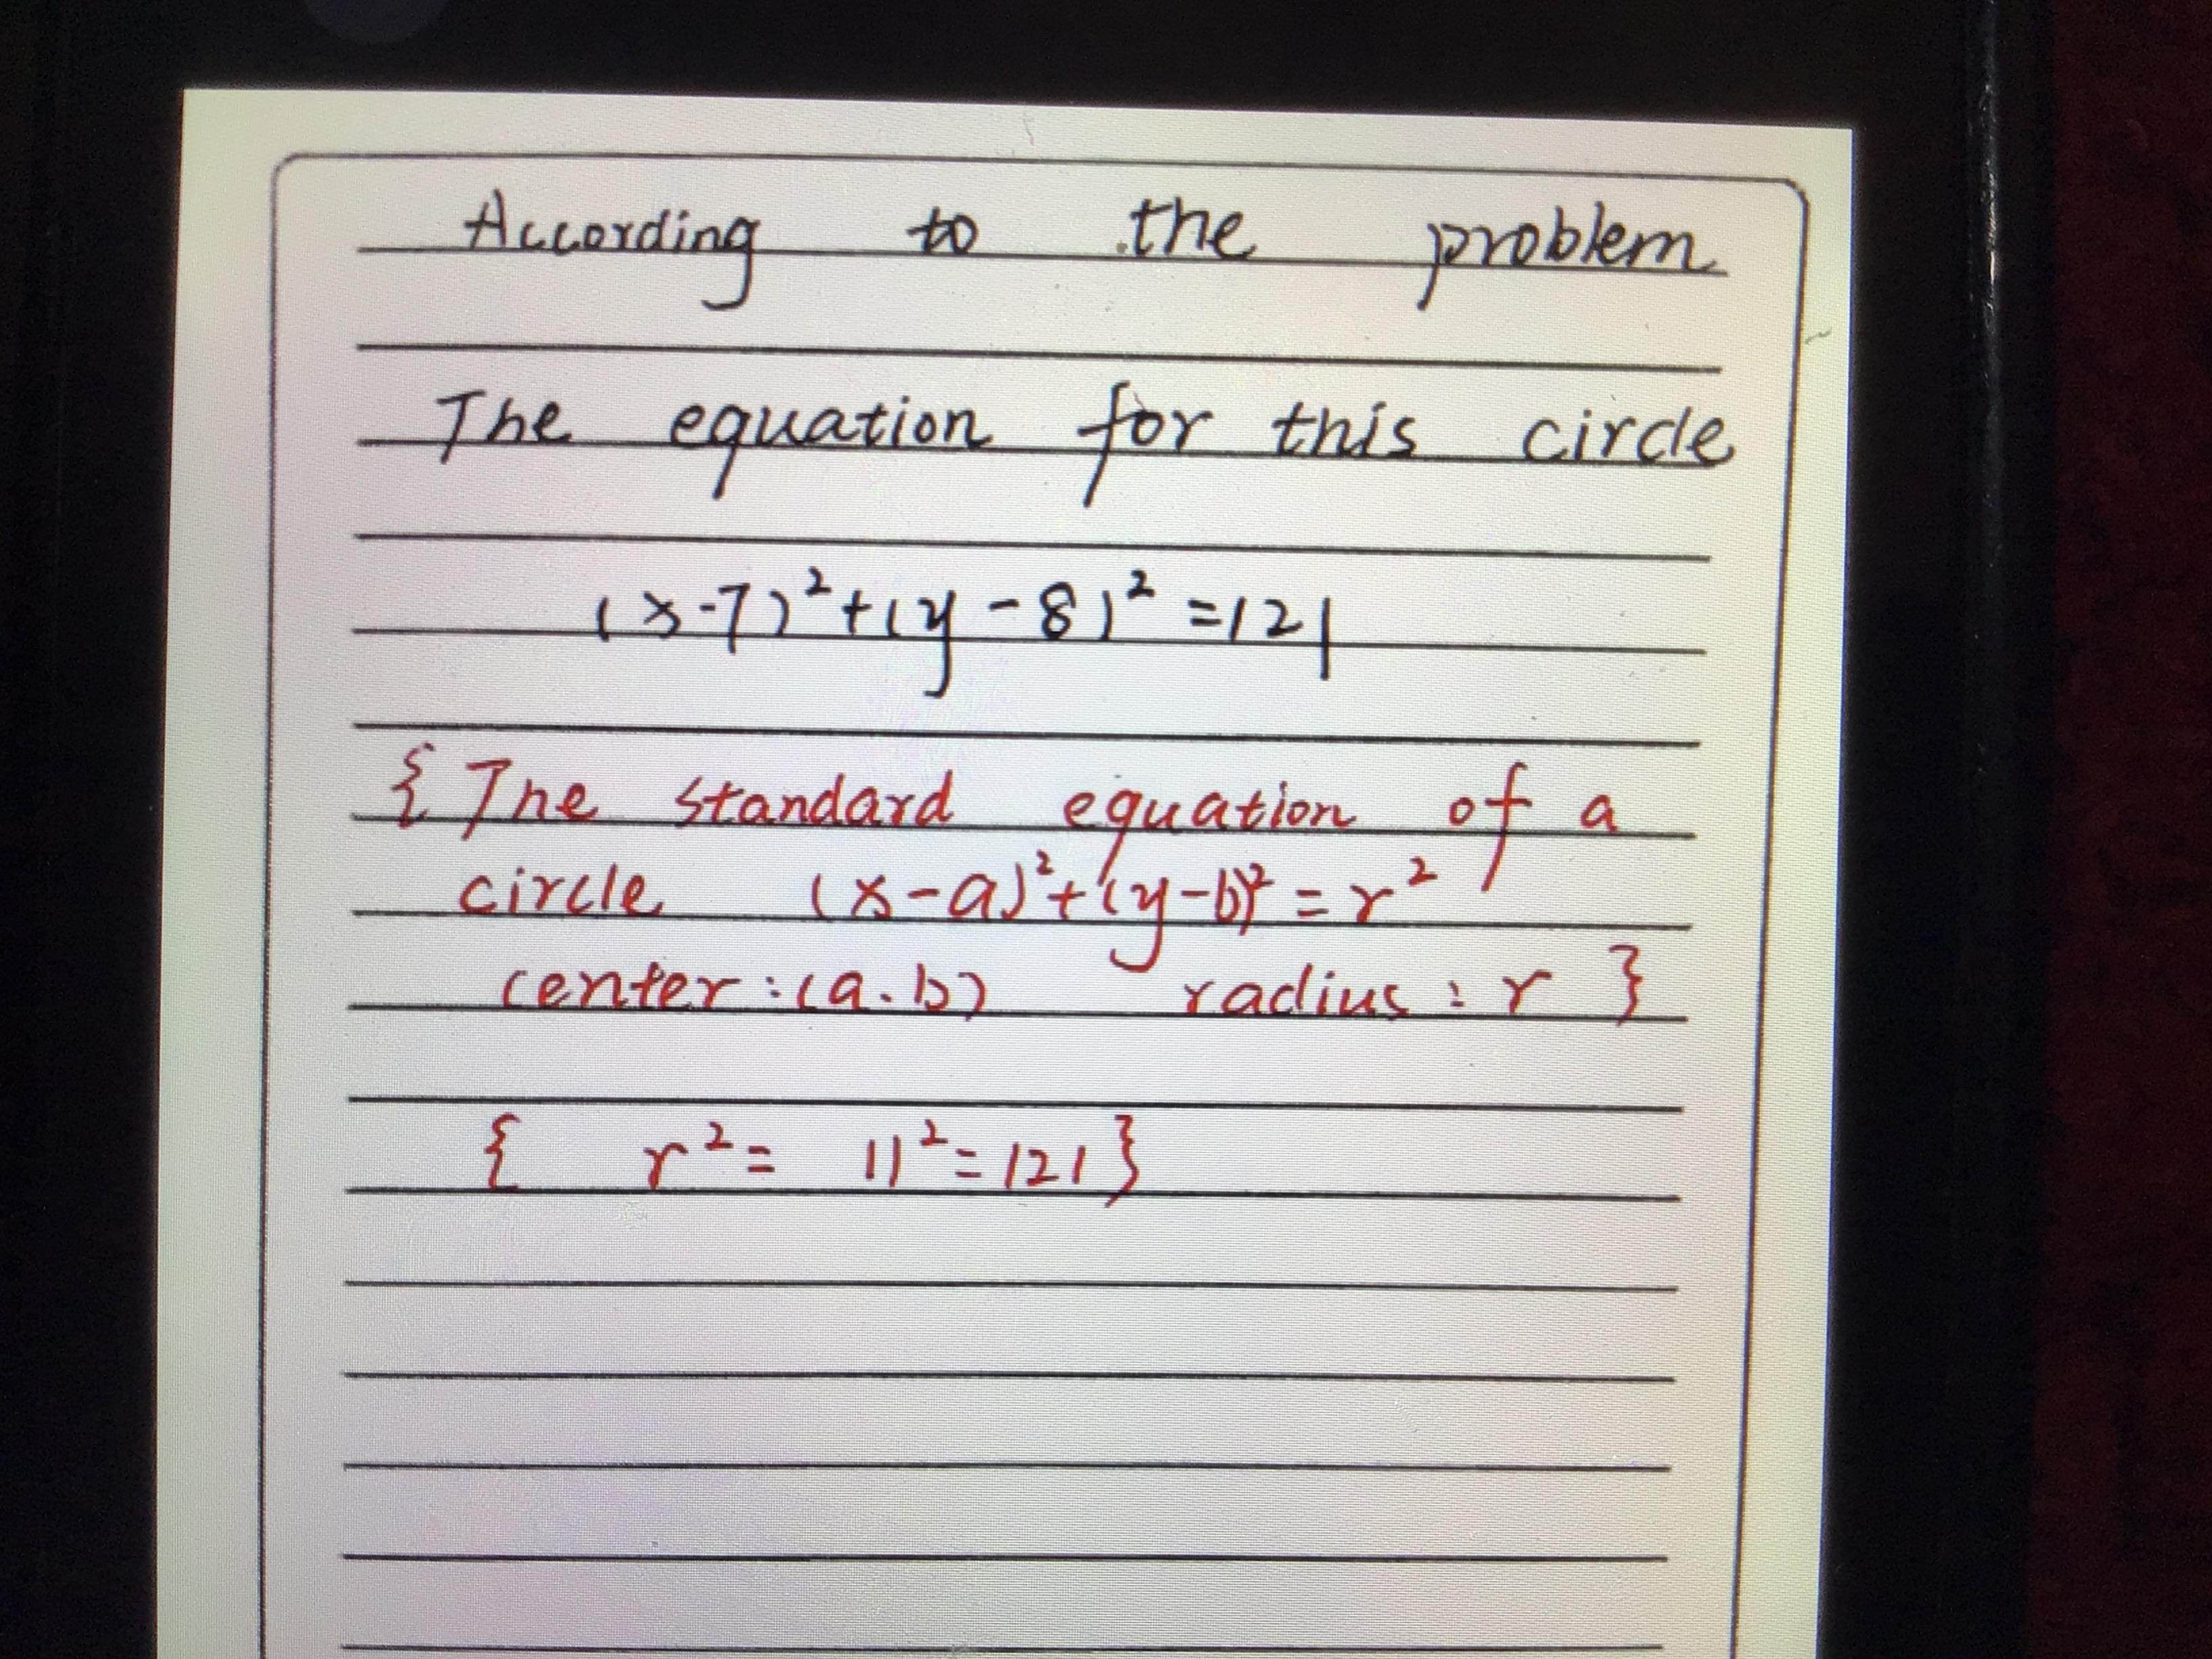 According to the problem
The equation for this circle
(x-7)²+(y-8)²=121
{The standard equation of a
circle (x-a)²+(y-b)²=r²
center:(a.b) radius:r}
{ r²= 11²=121}